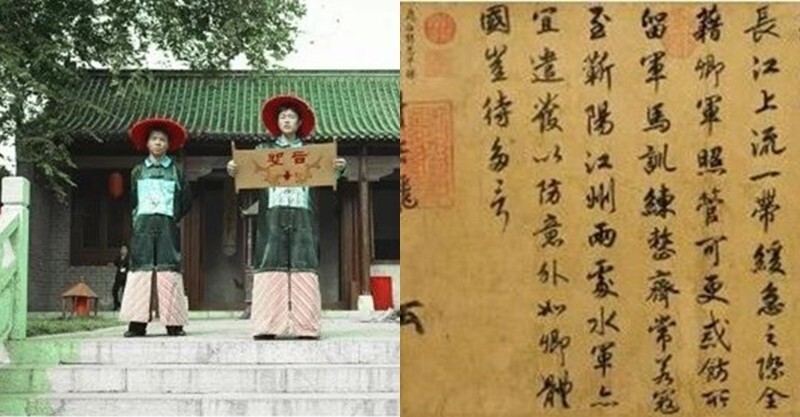 圣旨
長江上流一帶緩急之際全
藉卿軍照管可更戒飭所
留軍馬訓練整齊常若寇
至蘄陽江州兩處水軍亦
宜遣發以防意外如卿體
國豈待多言